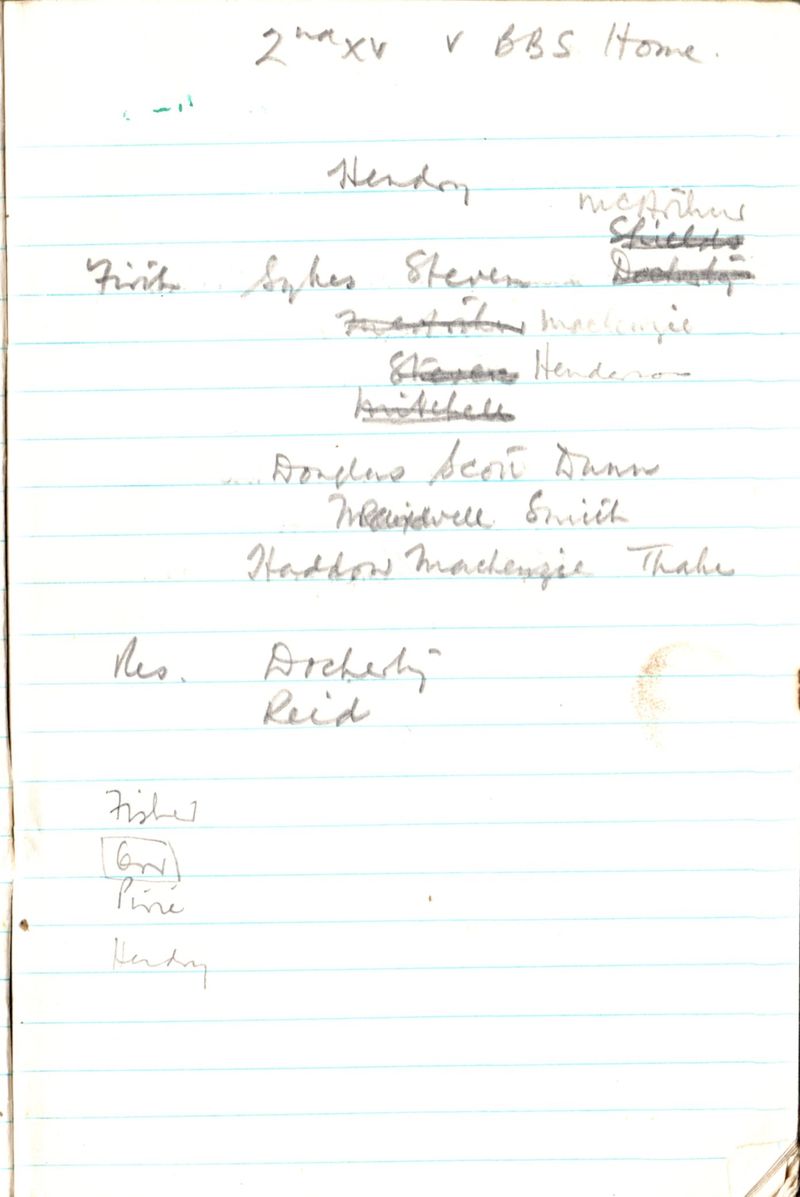 2nd XV v BBS Home.
Hendry
McArthur
Shields
Firth Sykes Steven Docherty
McArthur Mackenzie
Steven Henderson
Mitchell
Douglas Scott Dunn
Maxwell Smith
Haddow Mackenzie Thake
Res. Docherty
Reid
Fisher
Orr
Pirie
Hendry